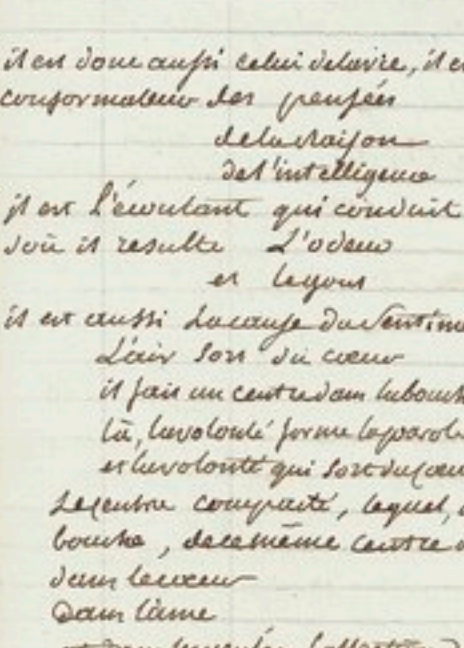 il est donc aussi celui de la vie, il es
conformateur des pensées
de la raison
de l'intelligence
il est l'écoulant qui conduit
d'où il resulte L'odeur
et le goût
il est aussi la cause du Sentime
L'air sort du cœur
il fait un centre dans la bouche
là, la volonté forme la parole
et la volonté qui sort du cœu
Le centre compacté, lequel,
bouche, de ce même centre
dans le cœur
Dans l'ame